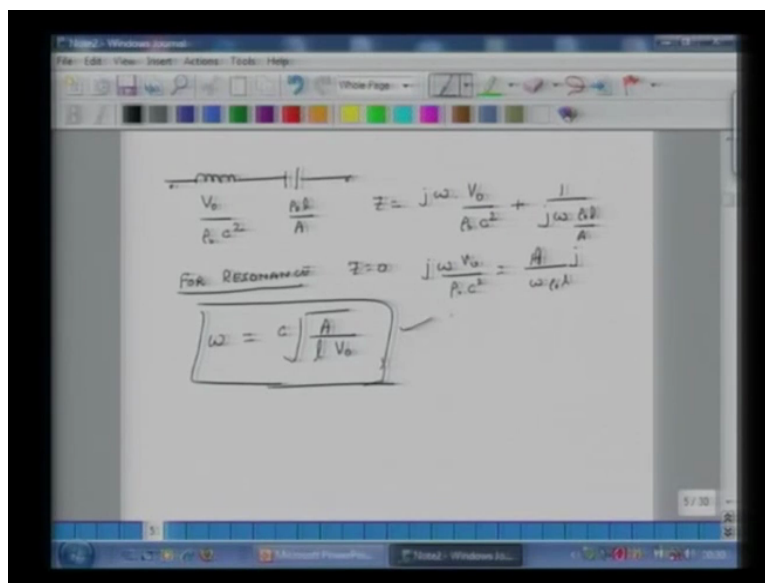 Note2 - Windows Journal
File Edit View Insert Actions Tools Help
Whole Page
B I
V₀/ρ₀c² ρ₀l/A Z = jω V₀/ρ₀c² + 1/(jω ρ₀l/A)
FOR RESONANCE Z=0 jωV₀/ρ₀c² = A/ωρ₀l j
ω = c√(A/l V₀)
5 / 30
5
Microsoft PowerPo... Note2 - Windows Jo...